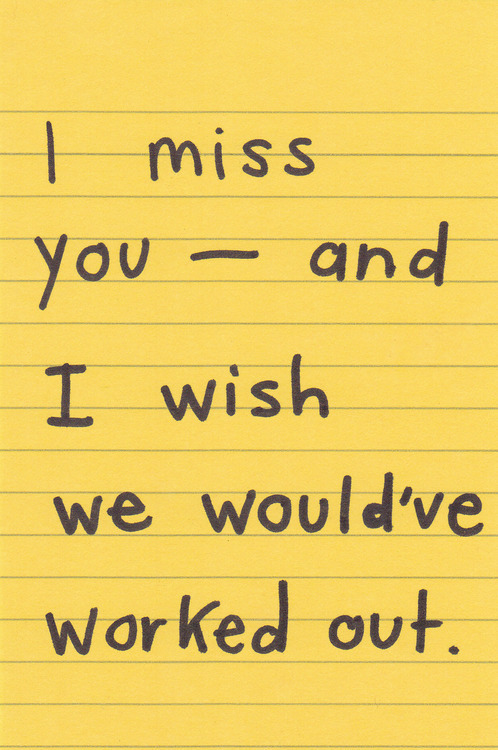 I miss
you — and
I wish
we would've
worked out.